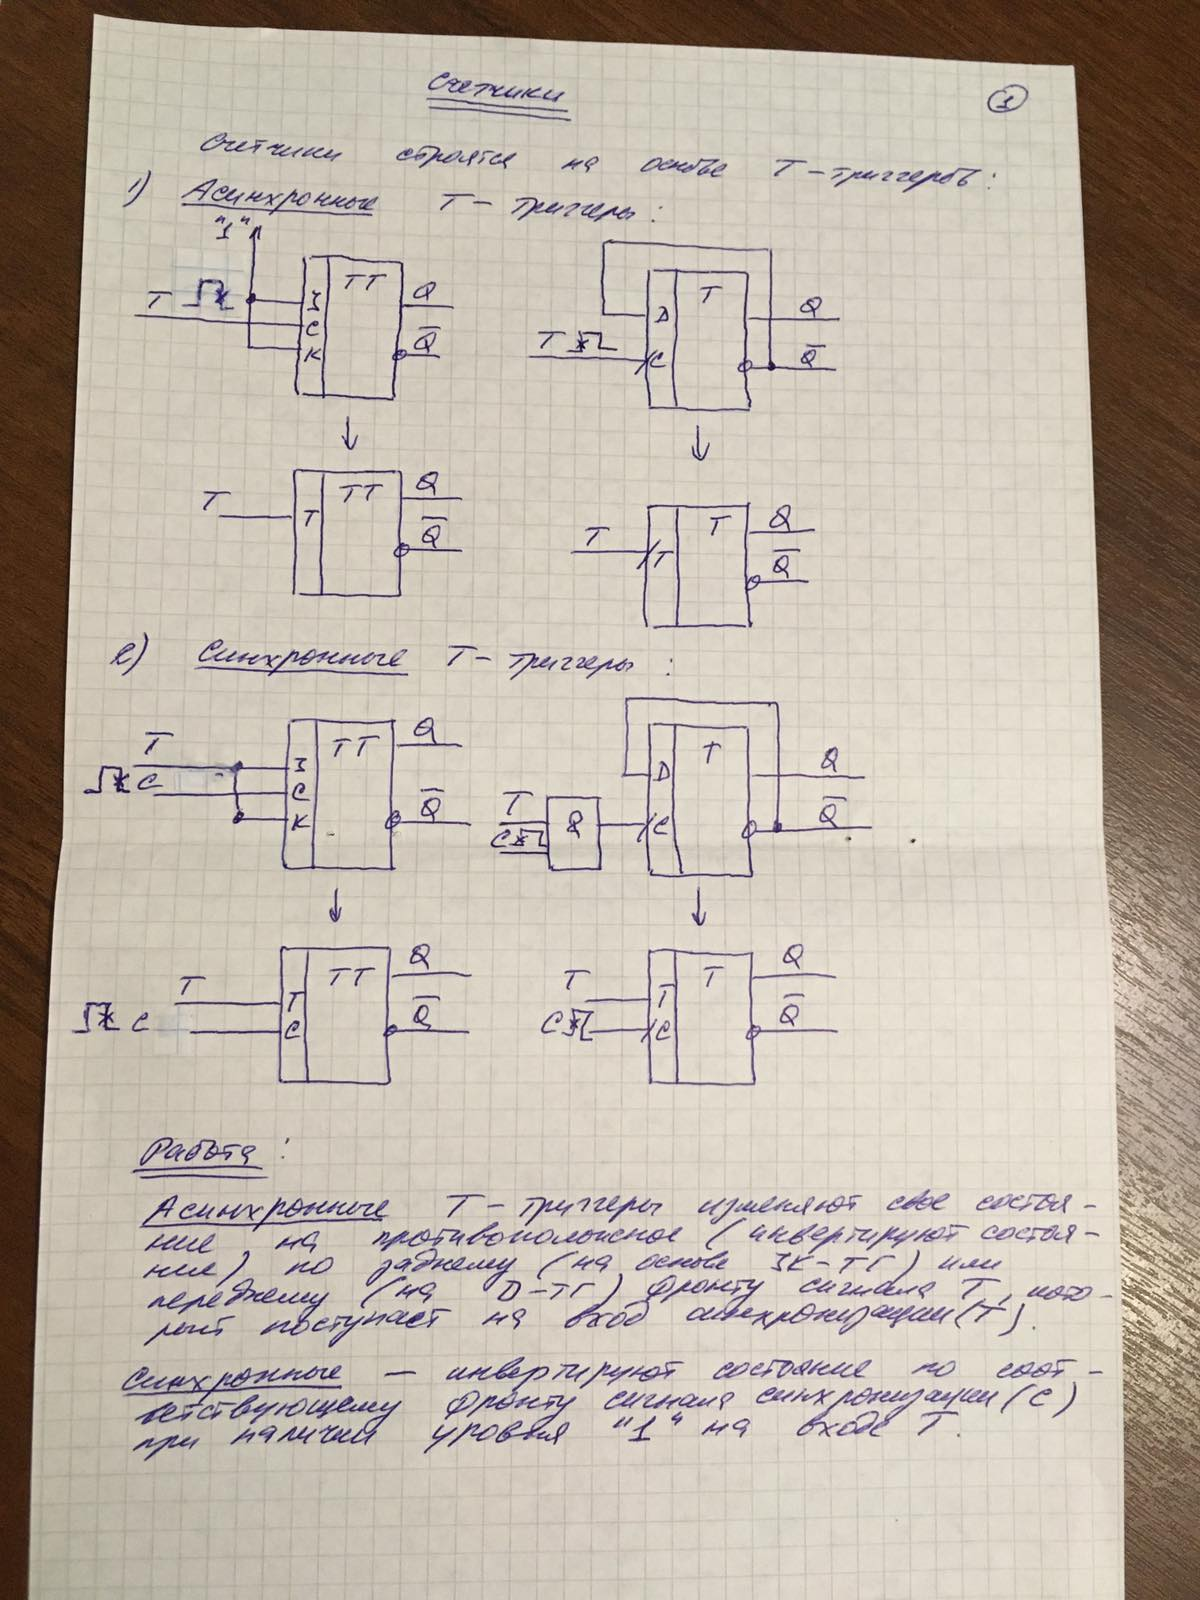 Счетчики
1
Счетчики строятся на основе Т-триггеров:
1) Асинхронные Т-триггеры:
"1"
TT Q
T J
C
K Q̅
T Q
D
T C Q̅
TT Q
T T
Q̅
T Q
T T
Q̅
2) Синхронные Т-триггеры:
TT Q
T J
C C
K Q̅
T Q
D
T & C Q̅
C
TT Q
T T
C C Q̅
T Q
T T
C C Q̅
Работа:
Асинхронные Т-триггеры изменяют свое состоя-
ние на противоположное (инвертируют состоя-
ние) по заднему (на основе JK-ТГ) или
переднему (на D-ТГ) фронту сигнала Т, кото-
рый поступает на вход синхронизации (Т).
Синхронные — инвертируют состояние по соот-
ветствующему фронту сигнала синхронизации (С)
при наличии уровня "1" на входе Т.